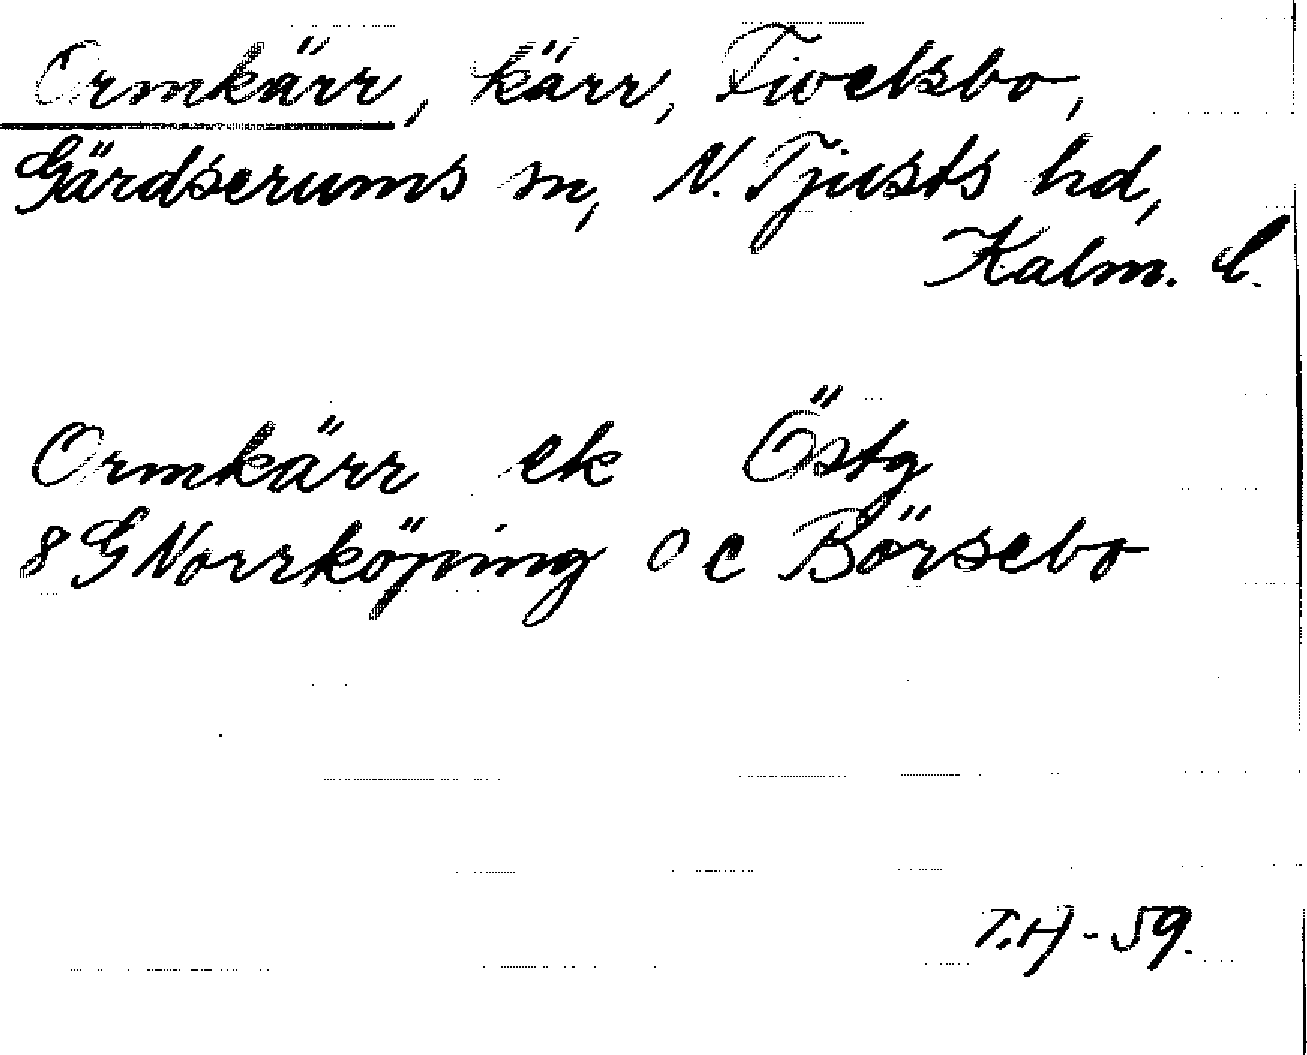 Ormkärr, kärr, Fivelsbo,
Gärdserums sn, N. Tjusts hd,
Kalm. l.
Ormkärr ek Östg
8 G Norrköping o c Börsebo
T.H-59.